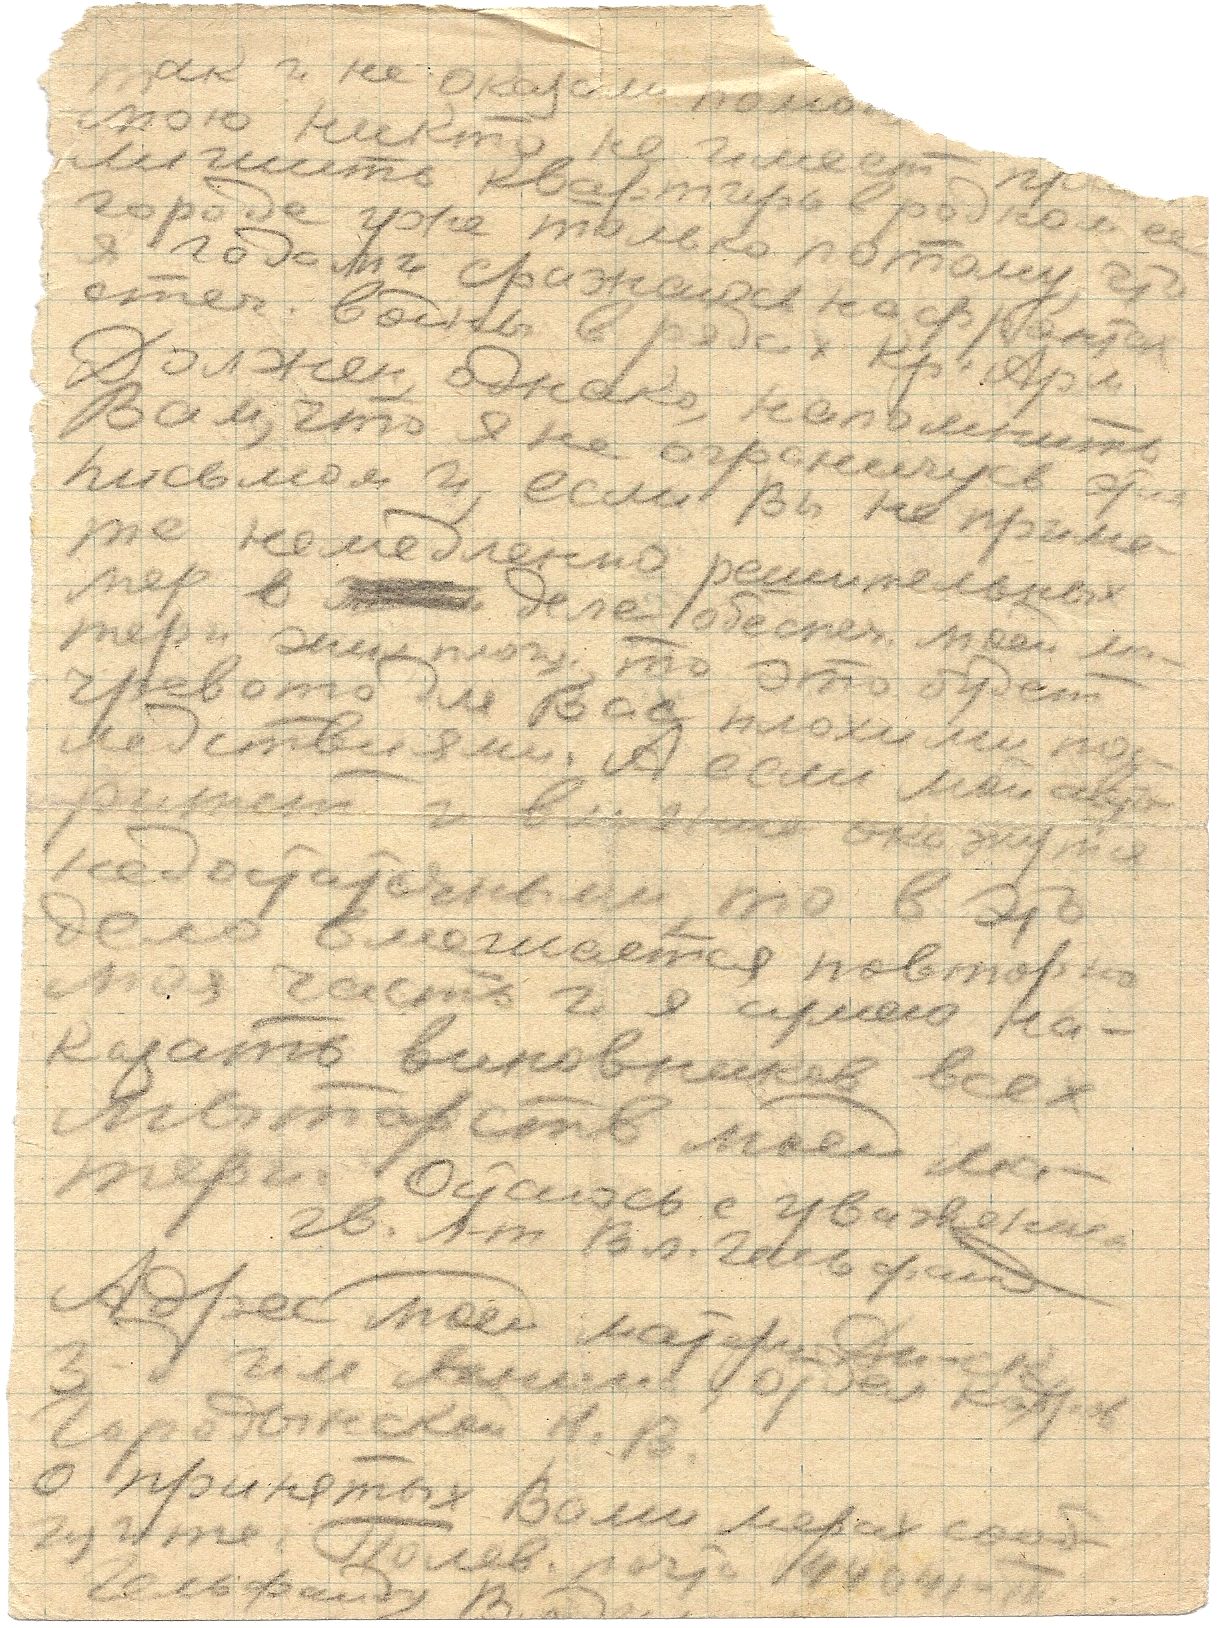 так и не оказали помощ
мою никто не имеет пра
лишить квартиры в родном ее
городе уже только потому, что
я годами сражаюсь на фронтах
отеч. войны в рядах Кр. Арм
Должен, однако, напомнить
Вам, что я не ограничусь этим
письмом и, если Вы не приме-
те немедленно решительных
мер в деле обеспеч. моей ма-
тери жил. площ., то это будет
чревато для Вас плохими пос-
ледствиями. А если мой авто-
ритет и окажутся
недостаточными, то в это
дело вмешается повторно
моя часть и я сумею на-
казать виновников всех
мытарств моей ма-
тери. Остаюсь с уважением
гв. л-т Вл. Гельфанд
Адрес моей матери:
З-д им Ленина, отдел кадров
Городынской Н. В.
О принятых Вами мерах сооб-
щите. Полев. почта
Гельфанду